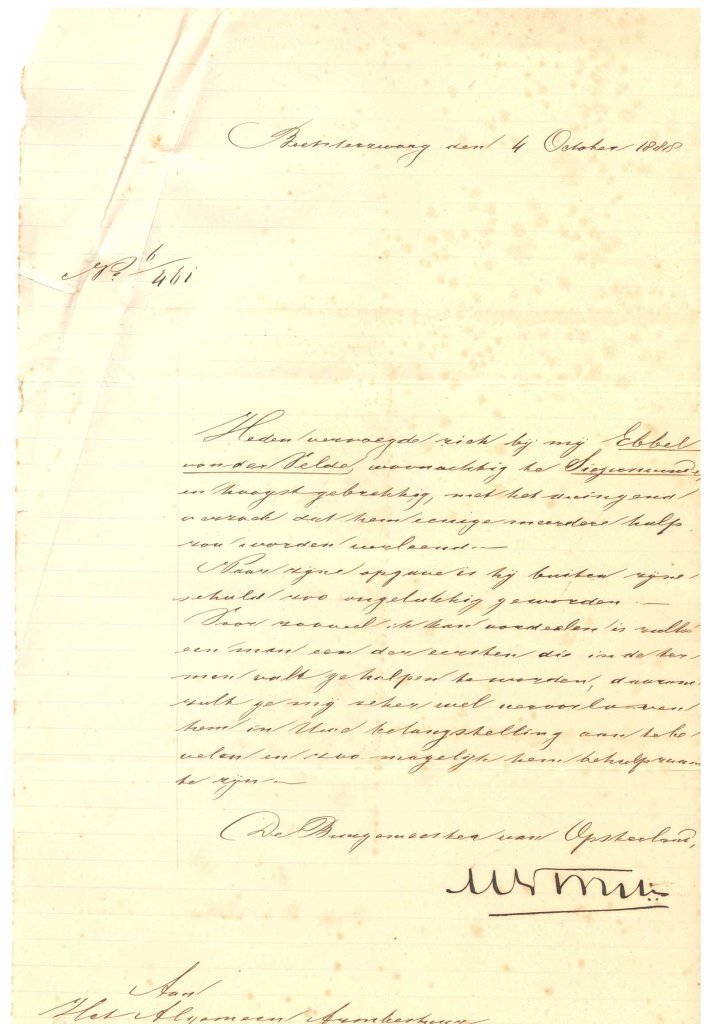 Beetsterzwaag den 4 October 1888
No 6/461
Heden vervoegde zich bij mij Ebbel
van der Velde, woonachtig te Siegerswoude,
en hoogst gebrekkig, met het dringend
verzoek dat hem eenige meerdere hulp
zou worden verleend.—
Naar zijne opgave is hij buiten zijne
schuld zoo ongelukkig geworden.—
Voor zooveel ik kan oordeelen is zulk
een man een der eersten die in de ter-
men valt geholpen te worden, daarom
zult ge mij zeker wel veroorloven
hem in Uwe belangstelling aan te be
velen en zoo mogelijk hem behulpzaam
te zijn.—
De Burgemeester van Opsterland,
Aan
Het Algemeen Armbestuur